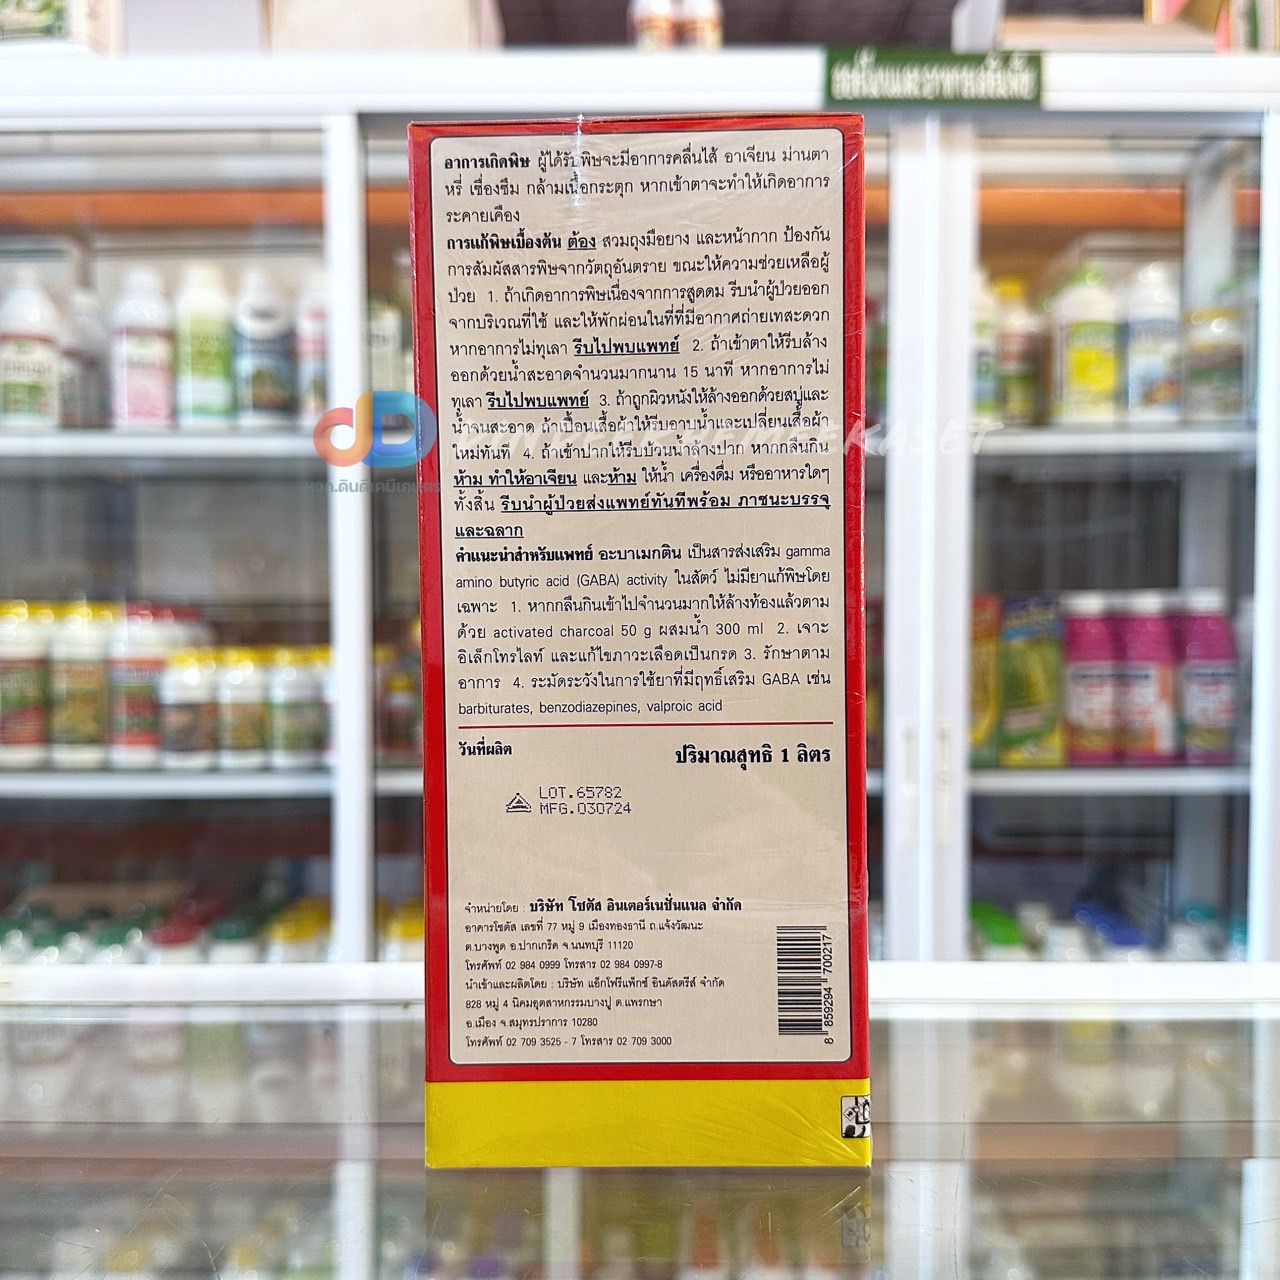 อาการเกิดพิษ ผู้ได้รับพิษจะมีอาการคลื่นไส้ อาเจียน ม่านตา
หรี่ เซื่องซึม กล้ามเนื้อกระตุก หากเข้าตาจะทำให้เกิดอาการ
ระคายเคือง
การแก้พิษเบื้องต้น ต้อง สวมถุงมือยาง และหน้ากาก ป้องกัน
การสัมผัสสารพิษจากวัตถุอันตราย ขณะให้ความช่วยเหลือผู้
ป่วย 1. ถ้าเกิดอาการพิษเนื่องจากการสูดดม รีบนำผู้ป่วยออก
จากบริเวณที่ใช้ และให้พักผ่อนในที่ที่มีอากาศถ่ายเทสะดวก
หากอาการไม่ทุเลา รีบไปพบแพทย์ 2. ถ้าเข้าตาให้รีบล้าง
ออกด้วยน้ำสะอาดจำนวนมากนาน 15 นาที หากอาการไม่
ทุเลา รีบไปพบแพทย์ 3. ถ้าถูกผิวหนังให้ล้างออกด้วยสบู่และ
น้ำจนสะอาด ถ้าเปื้อนเสื้อผ้าให้รีบอาบน้ำและเปลี่ยนเสื้อผ้า
ใหม่ทันที 4. ถ้าเข้าปากให้รีบบ้วนน้ำล้างปาก หากกลืนกิน
ห้าม ทำให้อาเจียน และห้าม ให้น้ำ เครื่องดื่ม หรืออาหารใดๆ
ทั้งสิ้น รีบนำผู้ป่วยส่งแพทย์ทันทีพร้อม ภาชนะบรรจุ
และฉลาก
คำแนะนำสำหรับแพทย์ อะบาเมกติน เป็นสารส่งเสริม gamma
amino butyric acid (GABA) activity ในสัตว์ ไม่มียาแก้พิษโดย
เฉพาะ 1. หากกลืนกินเข้าไปจำนวนมากให้ล้างท้องแล้วตาม
ด้วย activated charcoal 50 g ผสมน้ำ 300 ml 2. เจาะ
อิเล็กโทรไลท์ และแก้ไขภาวะเลือดเป็นกรด 3. รักษาตาม
อาการ 4. ระมัดระวังในการใช้ยาที่มีฤทธิ์เสริม GABA เช่น
barbiturates, benzodiazepines, valproic acid
วันที่ผลิต
ปริมาณสุทธิ 1 ลิตร
LOT.65782
MFG.030724
จำหน่ายโดย : บริษัท โซตัส อินเตอร์เนชั่นแนล จำกัด
อาคารโซตัส เลขที่ 77 หมู่ 9 เมืองทองธานี ถ.แจ้งวัฒนะ
ต.บางพูด อ.ปากเกร็ด จ.นนทบุรี 11120
โทรศัพท์ 02 984 0999 โทรสาร 02 984 0997-8
นำเข้าและผลิตโดย : บริษัท แอ็กโฟรีแพ็กซ์ อินดัสตรีส์ จำกัด
828 หมู่ 4 นิคมอุตสาหกรรมบางปู ต.แพรกษา
อ.เมือง จ.สมุทรปราการ 10280
โทรศัพท์ 02 709 3525 - 7 โทรสาร 02 709 3000
8 859294 700217
หจก.ดินดีเคมีเกษตร